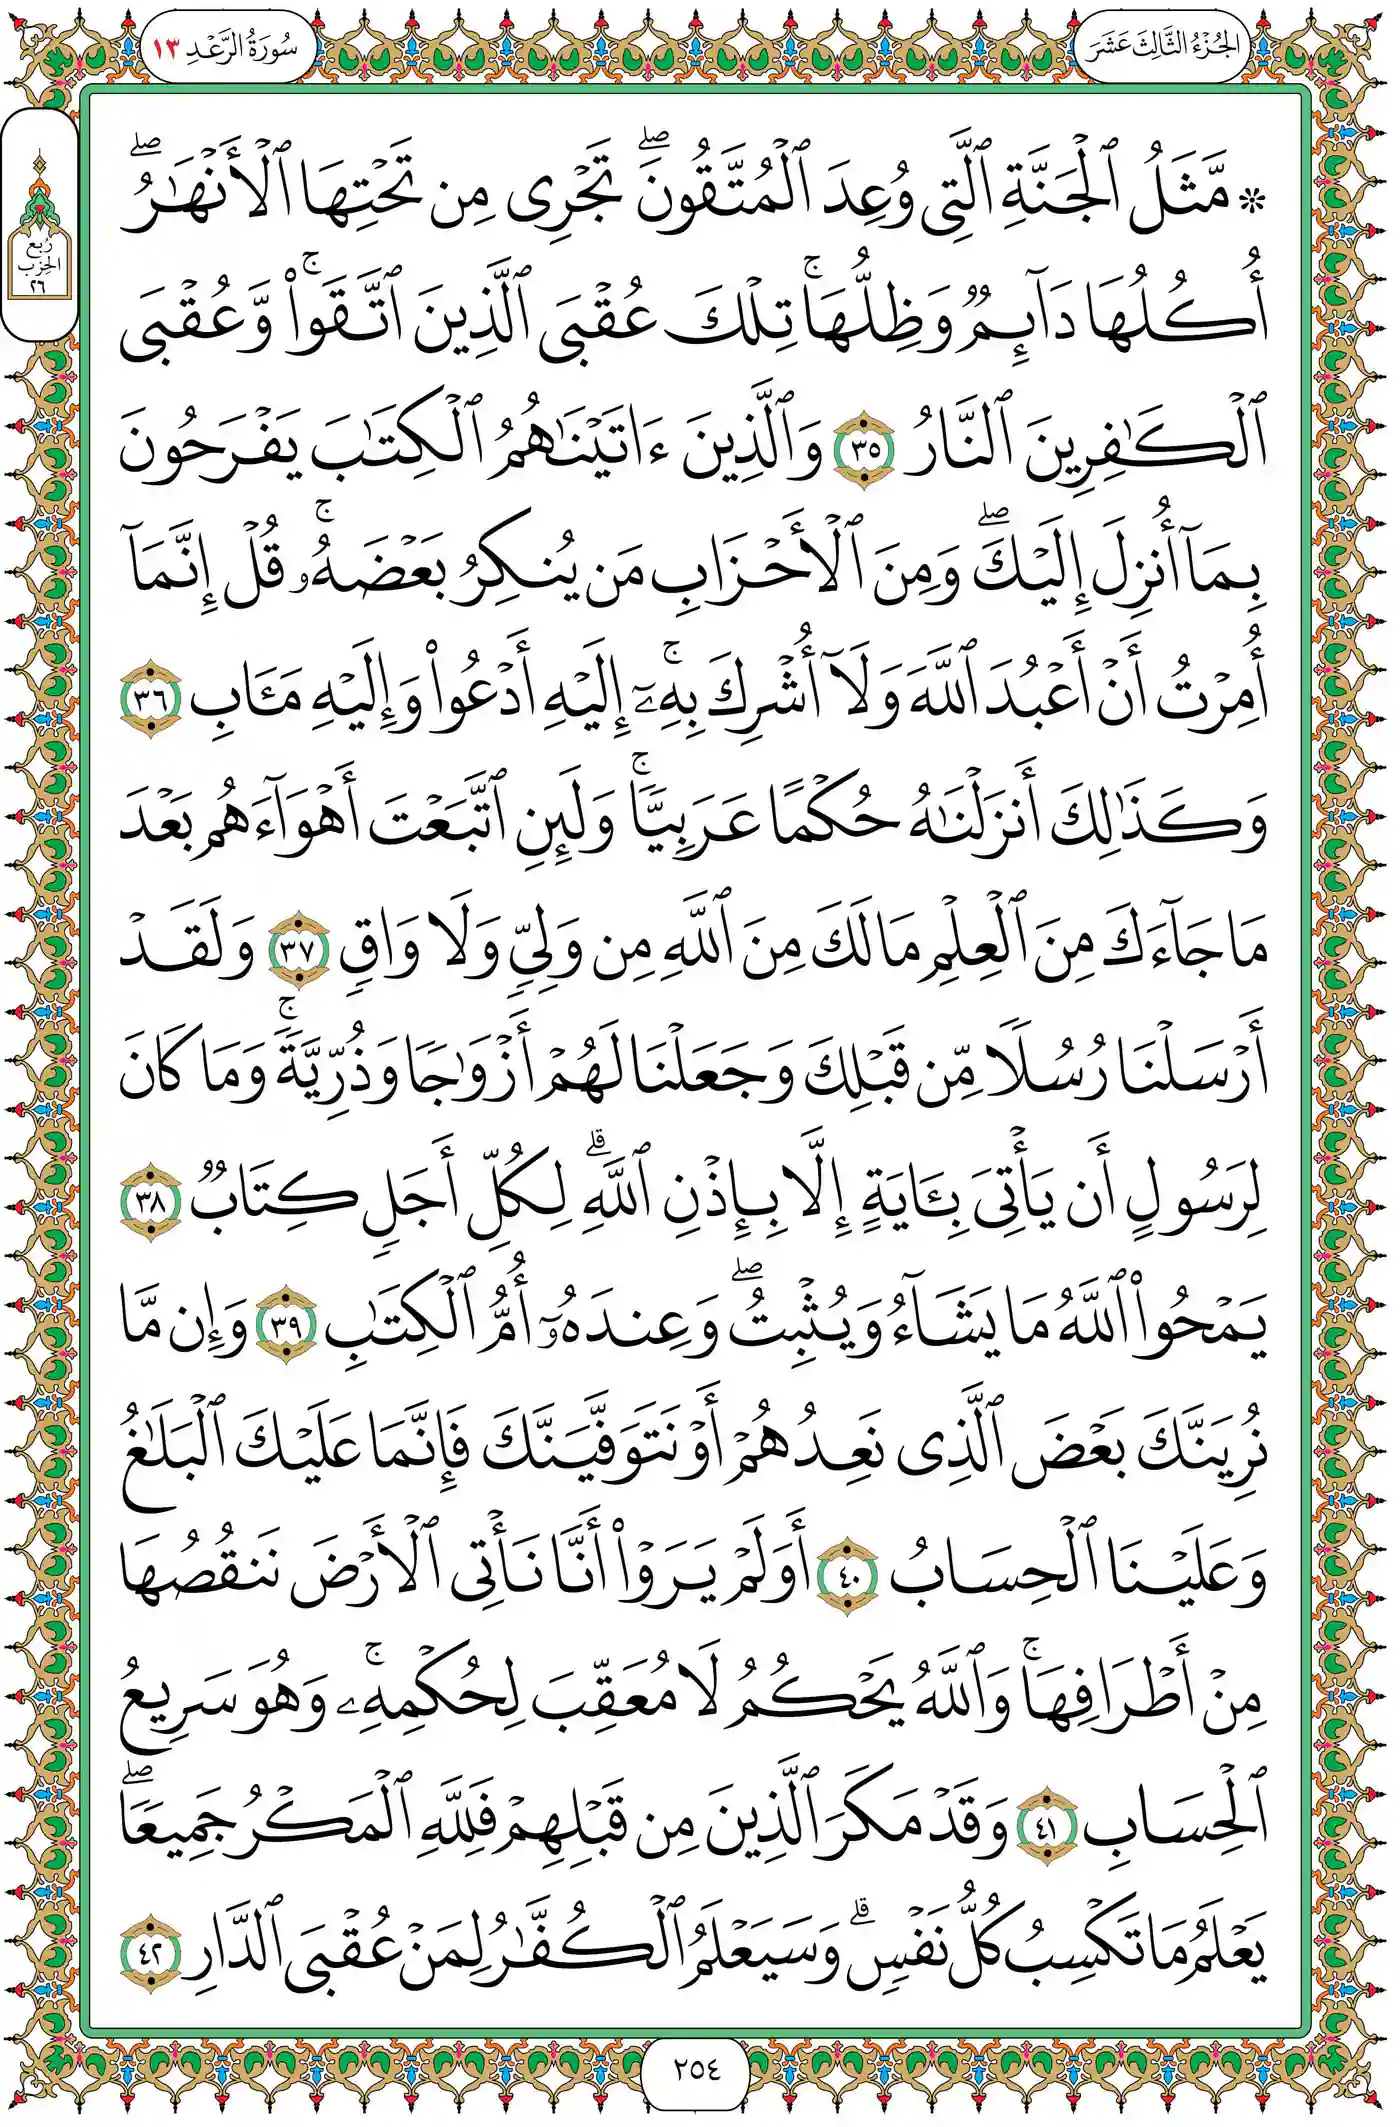 الجُزْءُ الثَّالِثَ عَشَرَ
سُورَةُ الرَّعْدِ ١٣
رُبع
الحِزب
٢٦
۞ مَّثَلُ ٱلْجَنَّةِ ٱلَّتِى وُعِدَ ٱلْمُتَّقُونَ ۖ تَجْرِى مِن تَحْتِهَا ٱلْأَنْهَـٰرُ ۖ
أُكُلُهَا دَآئِمٌ وَظِلُّهَا ۚ تِلْكَ عُقْبَى ٱلَّذِينَ ٱتَّقَوا۟ ۚ وَّعُقْبَى
ٱلْكَـٰفِرِينَ ٱلنَّارُ ٣٥ وَٱلَّذِينَ ءَاتَيْنَـٰهُمُ ٱلْكِتَـٰبَ يَفْرَحُونَ
بِمَآ أُنزِلَ إِلَيْكَ ۖ وَمِنَ ٱلْأَحْزَابِ مَن يُنكِرُ بَعْضَهُۥ ۚ قُلْ إِنَّمَآ
أُمِرْتُ أَنْ أَعْبُدَ ٱللَّهَ وَلَآ أُشْرِكَ بِهِۦٓ ۚ إِلَيْهِ أَدْعُوا۟ وَإِلَيْهِ مَـَٔابِ ٣٦
وَكَذَٰلِكَ أَنزَلْنَـٰهُ حُكْمًا عَرَبِيًّا ۚ وَلَئِنِ ٱتَّبَعْتَ أَهْوَآءَهُم بَعْدَ
مَا جَآءَكَ مِنَ ٱلْعِلْمِ مَا لَكَ مِنَ ٱللَّهِ مِن وَلِىٍّ وَلَا وَاقٍ ٣٧ وَلَقَدْ
أَرْسَلْنَا رُسُلًا مِّن قَبْلِكَ وَجَعَلْنَا لَهُمْ أَزْوَٰجًا وَذُرِّيَّةً ۚ وَمَا كَانَ
لِرَسُولٍ أَن يَأْتِىَ بِـَٔايَةٍ إِلَّا بِإِذْنِ ٱللَّهِ ۗ لِكُلِّ أَجَلٍ كِتَابٌ ٣٨
يَمْحُوا۟ ٱللَّهُ مَا يَشَآءُ وَيُثْبِتُ ۖ وَعِندَهُۥٓ أُمُّ ٱلْكِتَـٰبِ ٣٩ وَإِن مَّا
نُرِيَنَّكَ بَعْضَ ٱلَّذِى نَعِدُهُمْ أَوْ نَتَوَفَّيَنَّكَ فَإِنَّمَا عَلَيْكَ ٱلْبَلَـٰغُ
وَعَلَيْنَا ٱلْحِسَابُ ٤٠ أَوَلَمْ يَرَوْا۟ أَنَّا نَأْتِى ٱلْأَرْضَ نَنقُصُهَا
مِنْ أَطْرَافِهَا ۚ وَٱللَّهُ يَحْكُمُ لَا مُعَقِّبَ لِحُكْمِهِۦ ۚ وَهُوَ سَرِيعُ
ٱلْحِسَابِ ٤١ وَقَدْ مَكَرَ ٱلَّذِينَ مِن قَبْلِهِمْ فَلِلَّهِ ٱلْمَكْرُ جَمِيعًا ۖ
يَعْلَمُ مَا تَكْسِبُ كُلُّ نَفْسٍ ۗ وَسَيَعْلَمُ ٱلْكُفَّـٰرُ لِمَنْ عُقْبَى ٱلدَّارِ ٤٢
٢٥٤